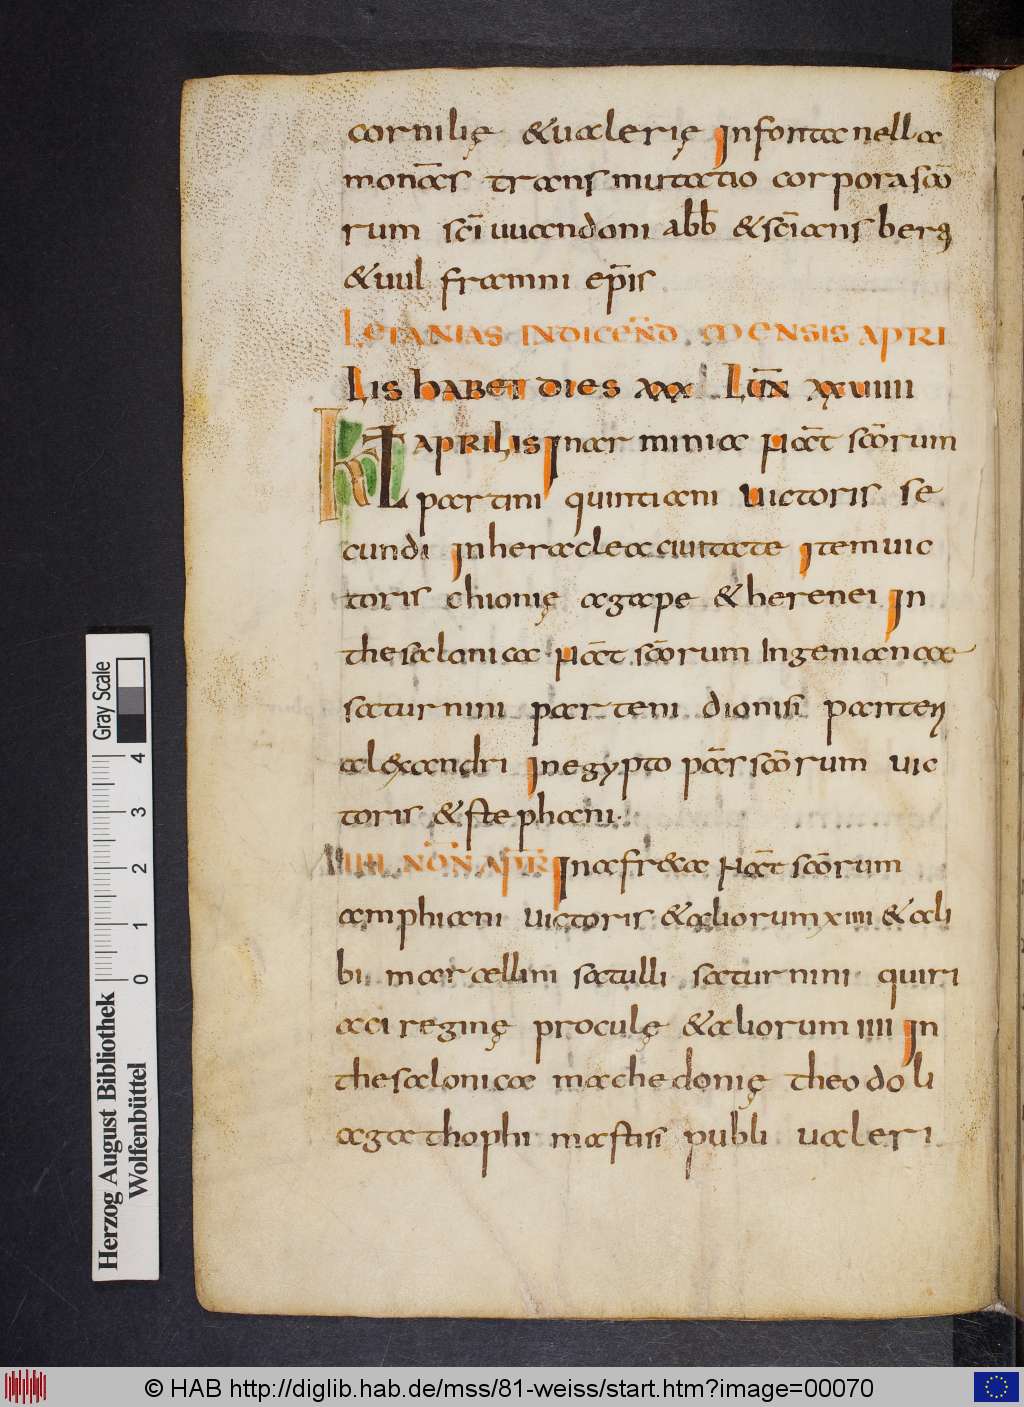 cornilię &ualerię In fontanella
monać̄s transmutatio corpora sc̄o
rum sc̄i uuandoni abb̄ & sc̄i ansberꝯ
& uulframni ep̄is
LETANIAS INDICEN̄D MENSIS APRI
LIS HABET DIES XXX LUN̄ XXVIIII
KL APRILIS In arminia Nat̄ sc̄orum
partini quintiani uictoris se
cundi In heraclea ciuitate Item uic
toris chionię agape & herenei In
thesalonica Nat̄ sc̄orum Ingenianae
saturnini parteni dionisi panteri
alęxandri In egypto pas̄ sc̄orum uic
toris & stephani·
IIII NON̄ APR̄ In afr&a Nat̄ sc̄orum
amphiani uictoris & aliorum xiiii & ali
bi marcellini satulli saturnini quiri
aci reginę proculę & aliorum iiii In
thesalonica machedonię theodoli
agathophi mastisi publi ualeri
Herzog August Bibliothek
Wolfenbüttel
0 1 2 3 4
Gray Scale
© HAB http://diglib.hab.de/mss/81-weiss/start.htm?image=00070